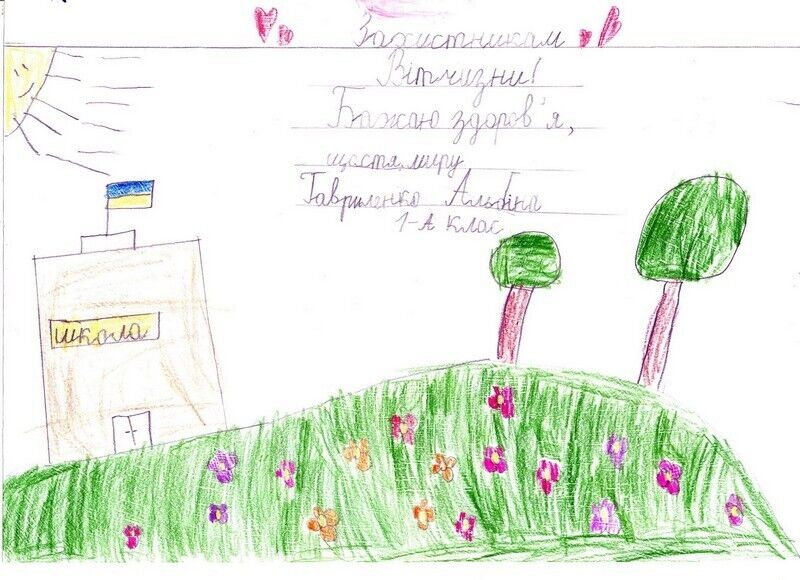 Захистникам
Вітчизни!
Бажаю здоров'я,
щастя, миру
Гавриленко Альбіна
1-А клас
школа